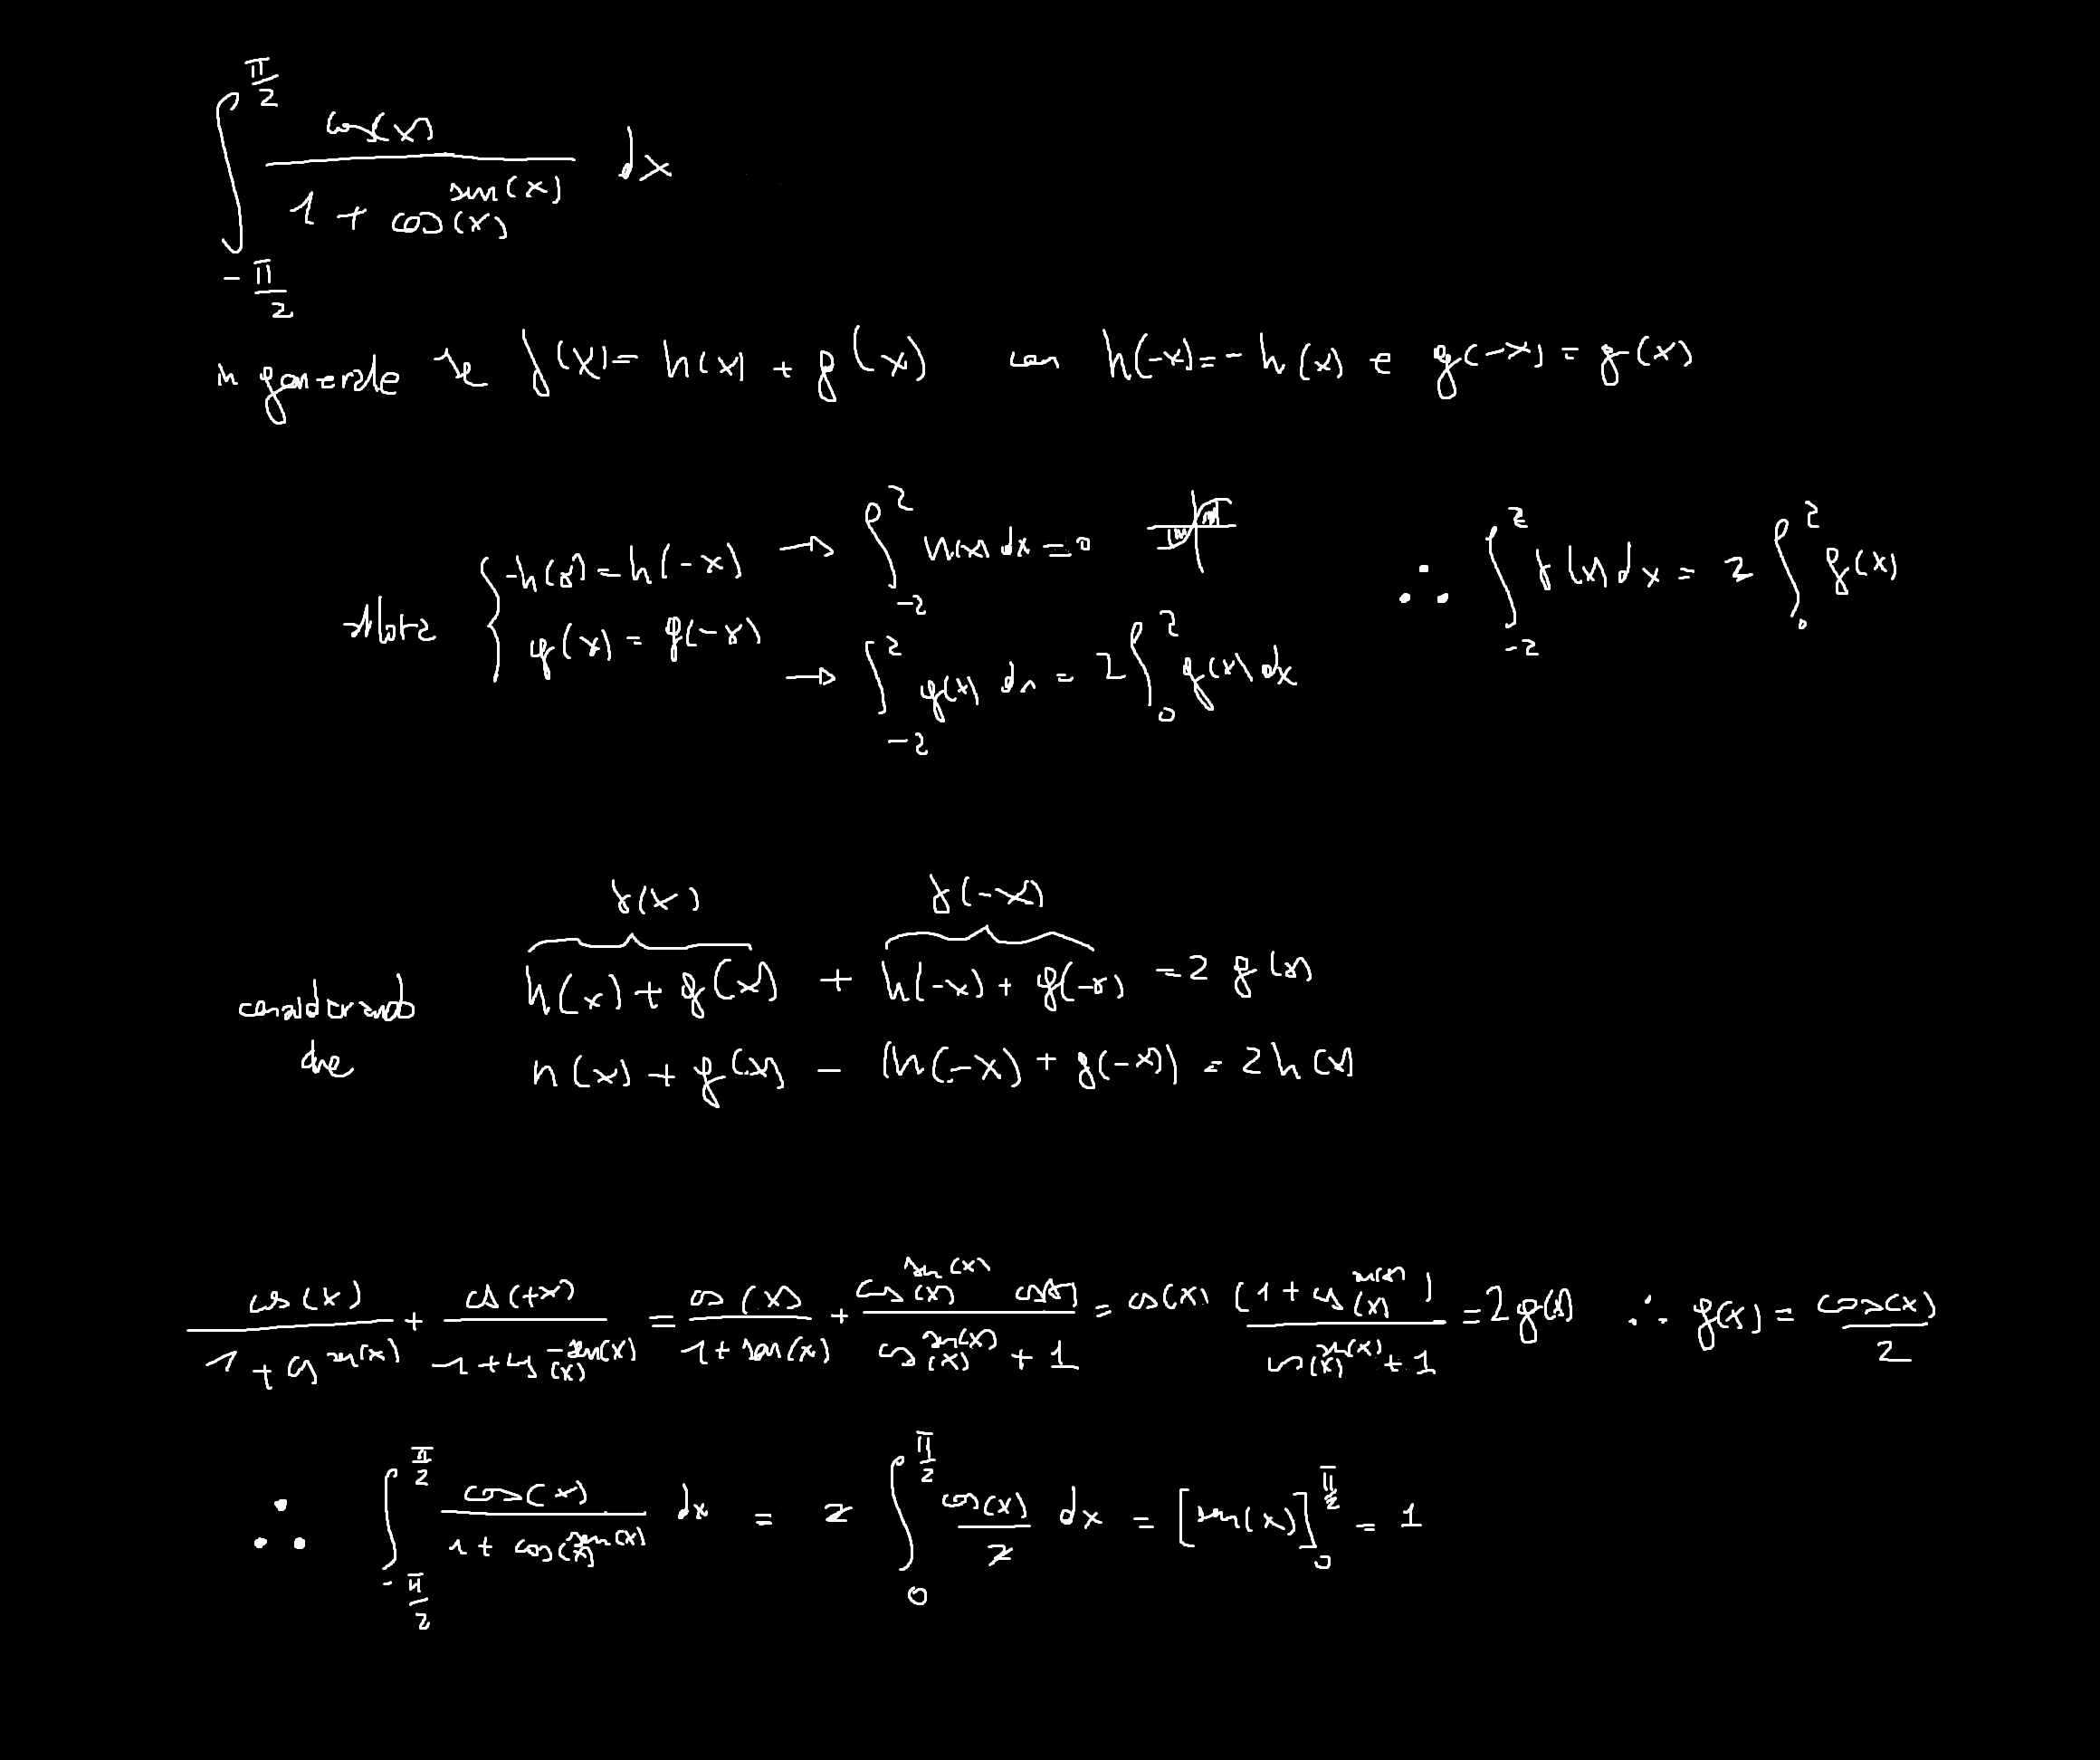 ∫_{-π/2}^{π/2} cos(x) / (1 + cos(x)^{sin(x)}) dx
in generale se f(x) = h(x) + g(x) con h(-x) = -h(x) e g(-x) = g(x)
allora { -h(x) = h(-x) → ∫_{-a}^{a} h(x) dx = 0 ∴ ∫_{-a}^{a} f(x) dx = 2 ∫_{0}^{a} g(x)
g(x) = g(-x) → ∫_{-a}^{a} g(x) dx = 2 ∫_{0}^{a} g(x) dx
f(x) f(-x)
considerando h(x) + g(x) + h(-x) + g(-x) = 2 g(x)
che h(x) + g(x) - (h(-x) + g(-x)) = 2 h(x)
cos(x) / (1 + cos^{sin(x)}) + cos(+x) / (1 + cos(x)^{-sin(x)}) = cos(x) / (1 + sen(x)) + cos(x)^{sin(x)} cos(x) / (cos(x)^{sin(x)} + 1) = cos(x) (1 + cos(x)^{sin(x)}) / (cos(x)^{sin(x)} + 1) = 2 g(x) ∴ g(x) = cos(x) / 2
∴ ∫_{-π/2}^{π/2} cos(x) / (1 + cos(x)^{sin(x)}) dx = 2 ∫_{0}^{π/2} cos(x) / 2 dx = [sin(x)]_{0}^{π/2} = 1